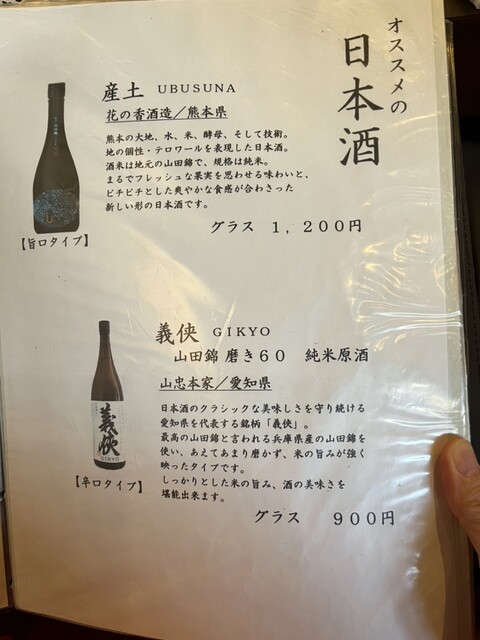 オススメの
日本酒
産土 UBUSUNA
花の香酒造／熊本県
熊本の大地、水、米、酵母、そして技術。
地の個性・テロワールを表現した日本酒。
酒米は地元の山田錦で、規格は純米。
まるでフレッシュな果実を思わせる味わいと、
ピチピチとした爽やかな食感が合わさった
新しい形の日本酒です。
【旨口タイプ】
グラス 1,200円
義侠 GIKYO
山田錦 磨き60 純米原酒
山忠本家／愛知県
日本酒のクラシックな美味しさを守り続ける
愛知県を代表する銘柄「義侠」。
最高の山田錦と言われる兵庫県産の山田錦を
使い、あえてあまり磨かず、米の旨みが強く
映ったタイプです。
しっかりとした米の旨み、酒の美味さを
堪能出来ます。
義侠
GIKYO
【辛口タイプ】
グラス 900円